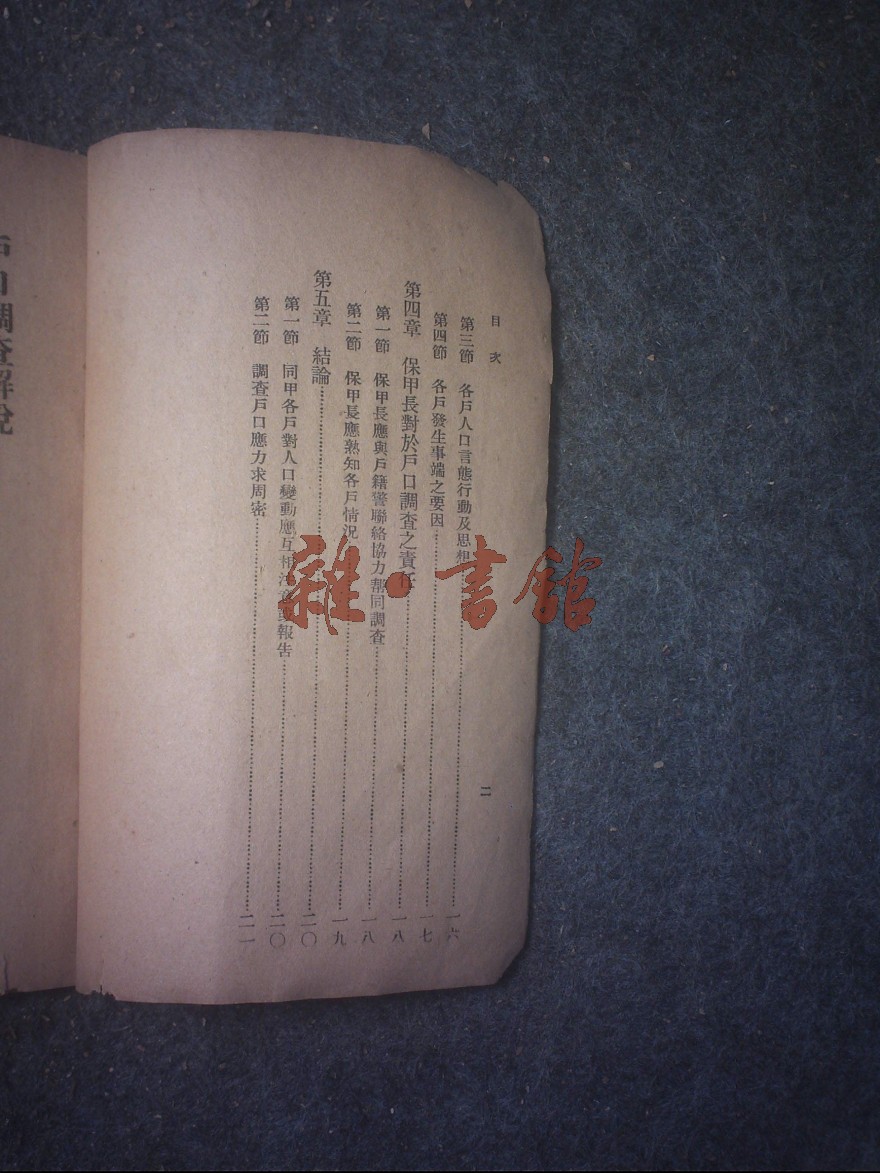 目次
二
第三節 各戶人口言態行動及思想……一六
第四節 各戶發生事端之要因……一七
第四章 保甲長對於戶口調查之責任……一八
第一節 保甲長應與戶籍警聯絡協力幫同調查……一八
第二節 保甲長應熟知各戶情況……一九
第五章 結論……二〇
第一節 同甲各戶對人口變動應互相注意或報告……二〇
第二節 調查戶口應力求周密……二一
戶口調查解說
雜·書館